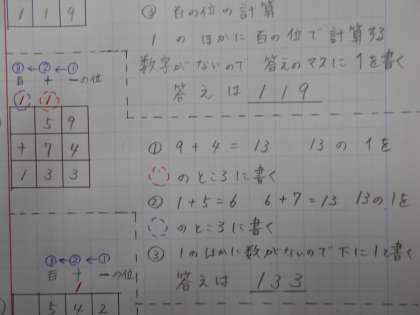 1 1 9
③ 百の位の計算
1 のほかに百の位で計算する
数字がないので 答えのマスに 1 を書く
答えは 1 1 9
③←②←①
百 十 一の位
1 1
5 9
+ 7 4
1 3 3
① 9 + 4 = 13 13 の 1 を
のところに書く
② 1 + 5 = 6 6 + 7 = 13 13の1を
のところに書く
③ 1のほかに数がないので下に1と書く
答えは 1 3 3
③←②←①
百 十 一の位
1
5 4 2